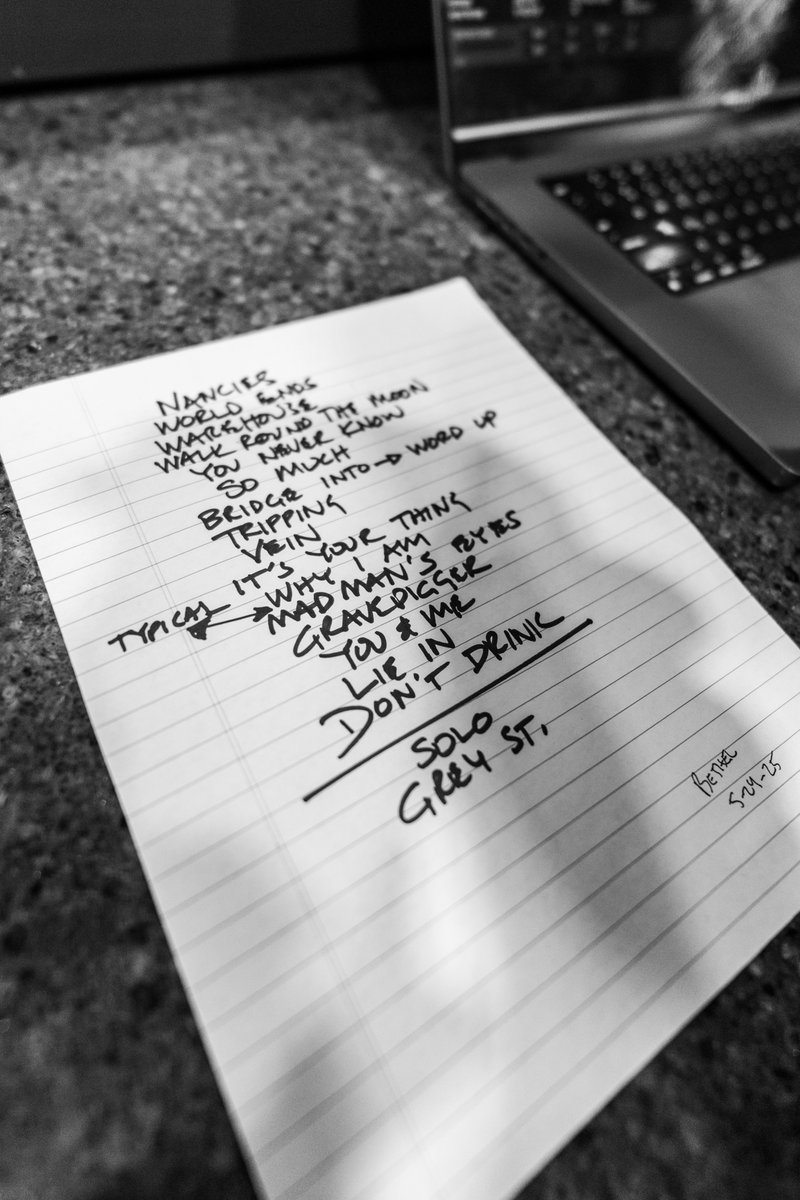 NANCIES
WORLD ENDS
WAREHOUSE
WALK ROUND THE MOON
YOU NEVER KNOW
SO MUCH
BRIDGE INTO → WORD UP
TRIPPING
VEIN
IT'S YOUR THING
WHY I AM
TYPICAL MAD MAN'S EYES
GRAVEDIGGER
YOU & ME
LIE IN
DON'T DRINK
SOLO
GREY ST,
BETHEL
5-24-25